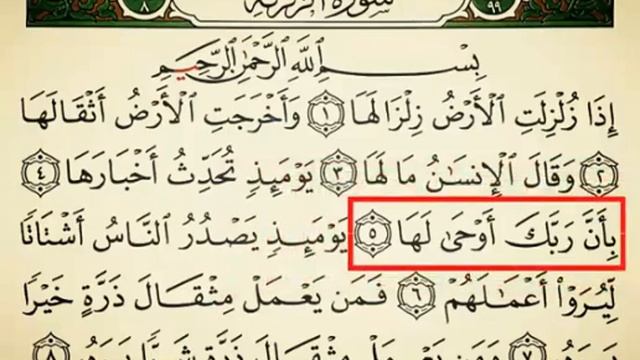 ٩٩ سورة الزلزلة ٨
بِسْمِ اللَّهِ الرَّحْمَٰنِ الرَّحِيمِ
إِذَا زُلْزِلَتِ الْأَرْضُ زِلْزَالَهَا ۝١ وَأَخْرَجَتِ الْأَرْضُ أَثْقَالَهَا
۝٢ وَقَالَ الْإِنسَٰنُ مَا لَهَا ۝٣ يَوْمَئِذٍ تُحَدِّثُ أَخْبَارَهَا ۝٤
بِأَنَّ رَبَّكَ أَوْحَىٰ لَهَا ۝٥ يَوْمَئِذٍ يَصْدُرُ النَّاسُ أَشْتَاتًا
لِّيُرَوْا أَعْمَٰلَهُمْ ۝٦ فَمَن يَعْمَلْ مِثْقَالَ ذَرَّةٍ خَيْرًا
يَرَهُ ۝٧ وَمَن يَعْمَلْ مِثْقَالَ ذَرَّةٍ شَرًّا يَرَهُ ۝٨